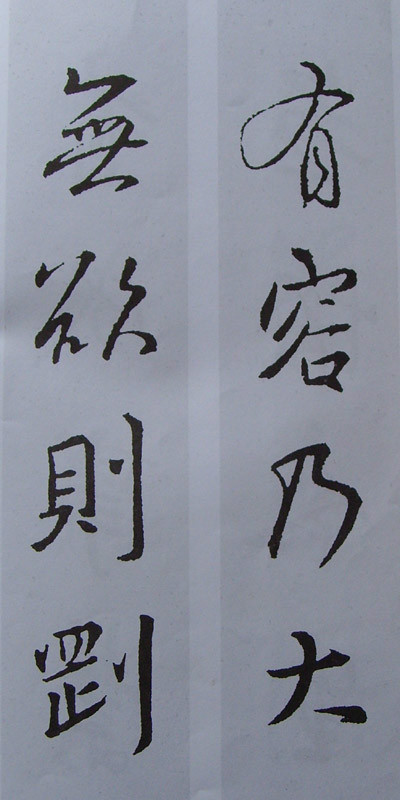 有容乃大
無欲則剛